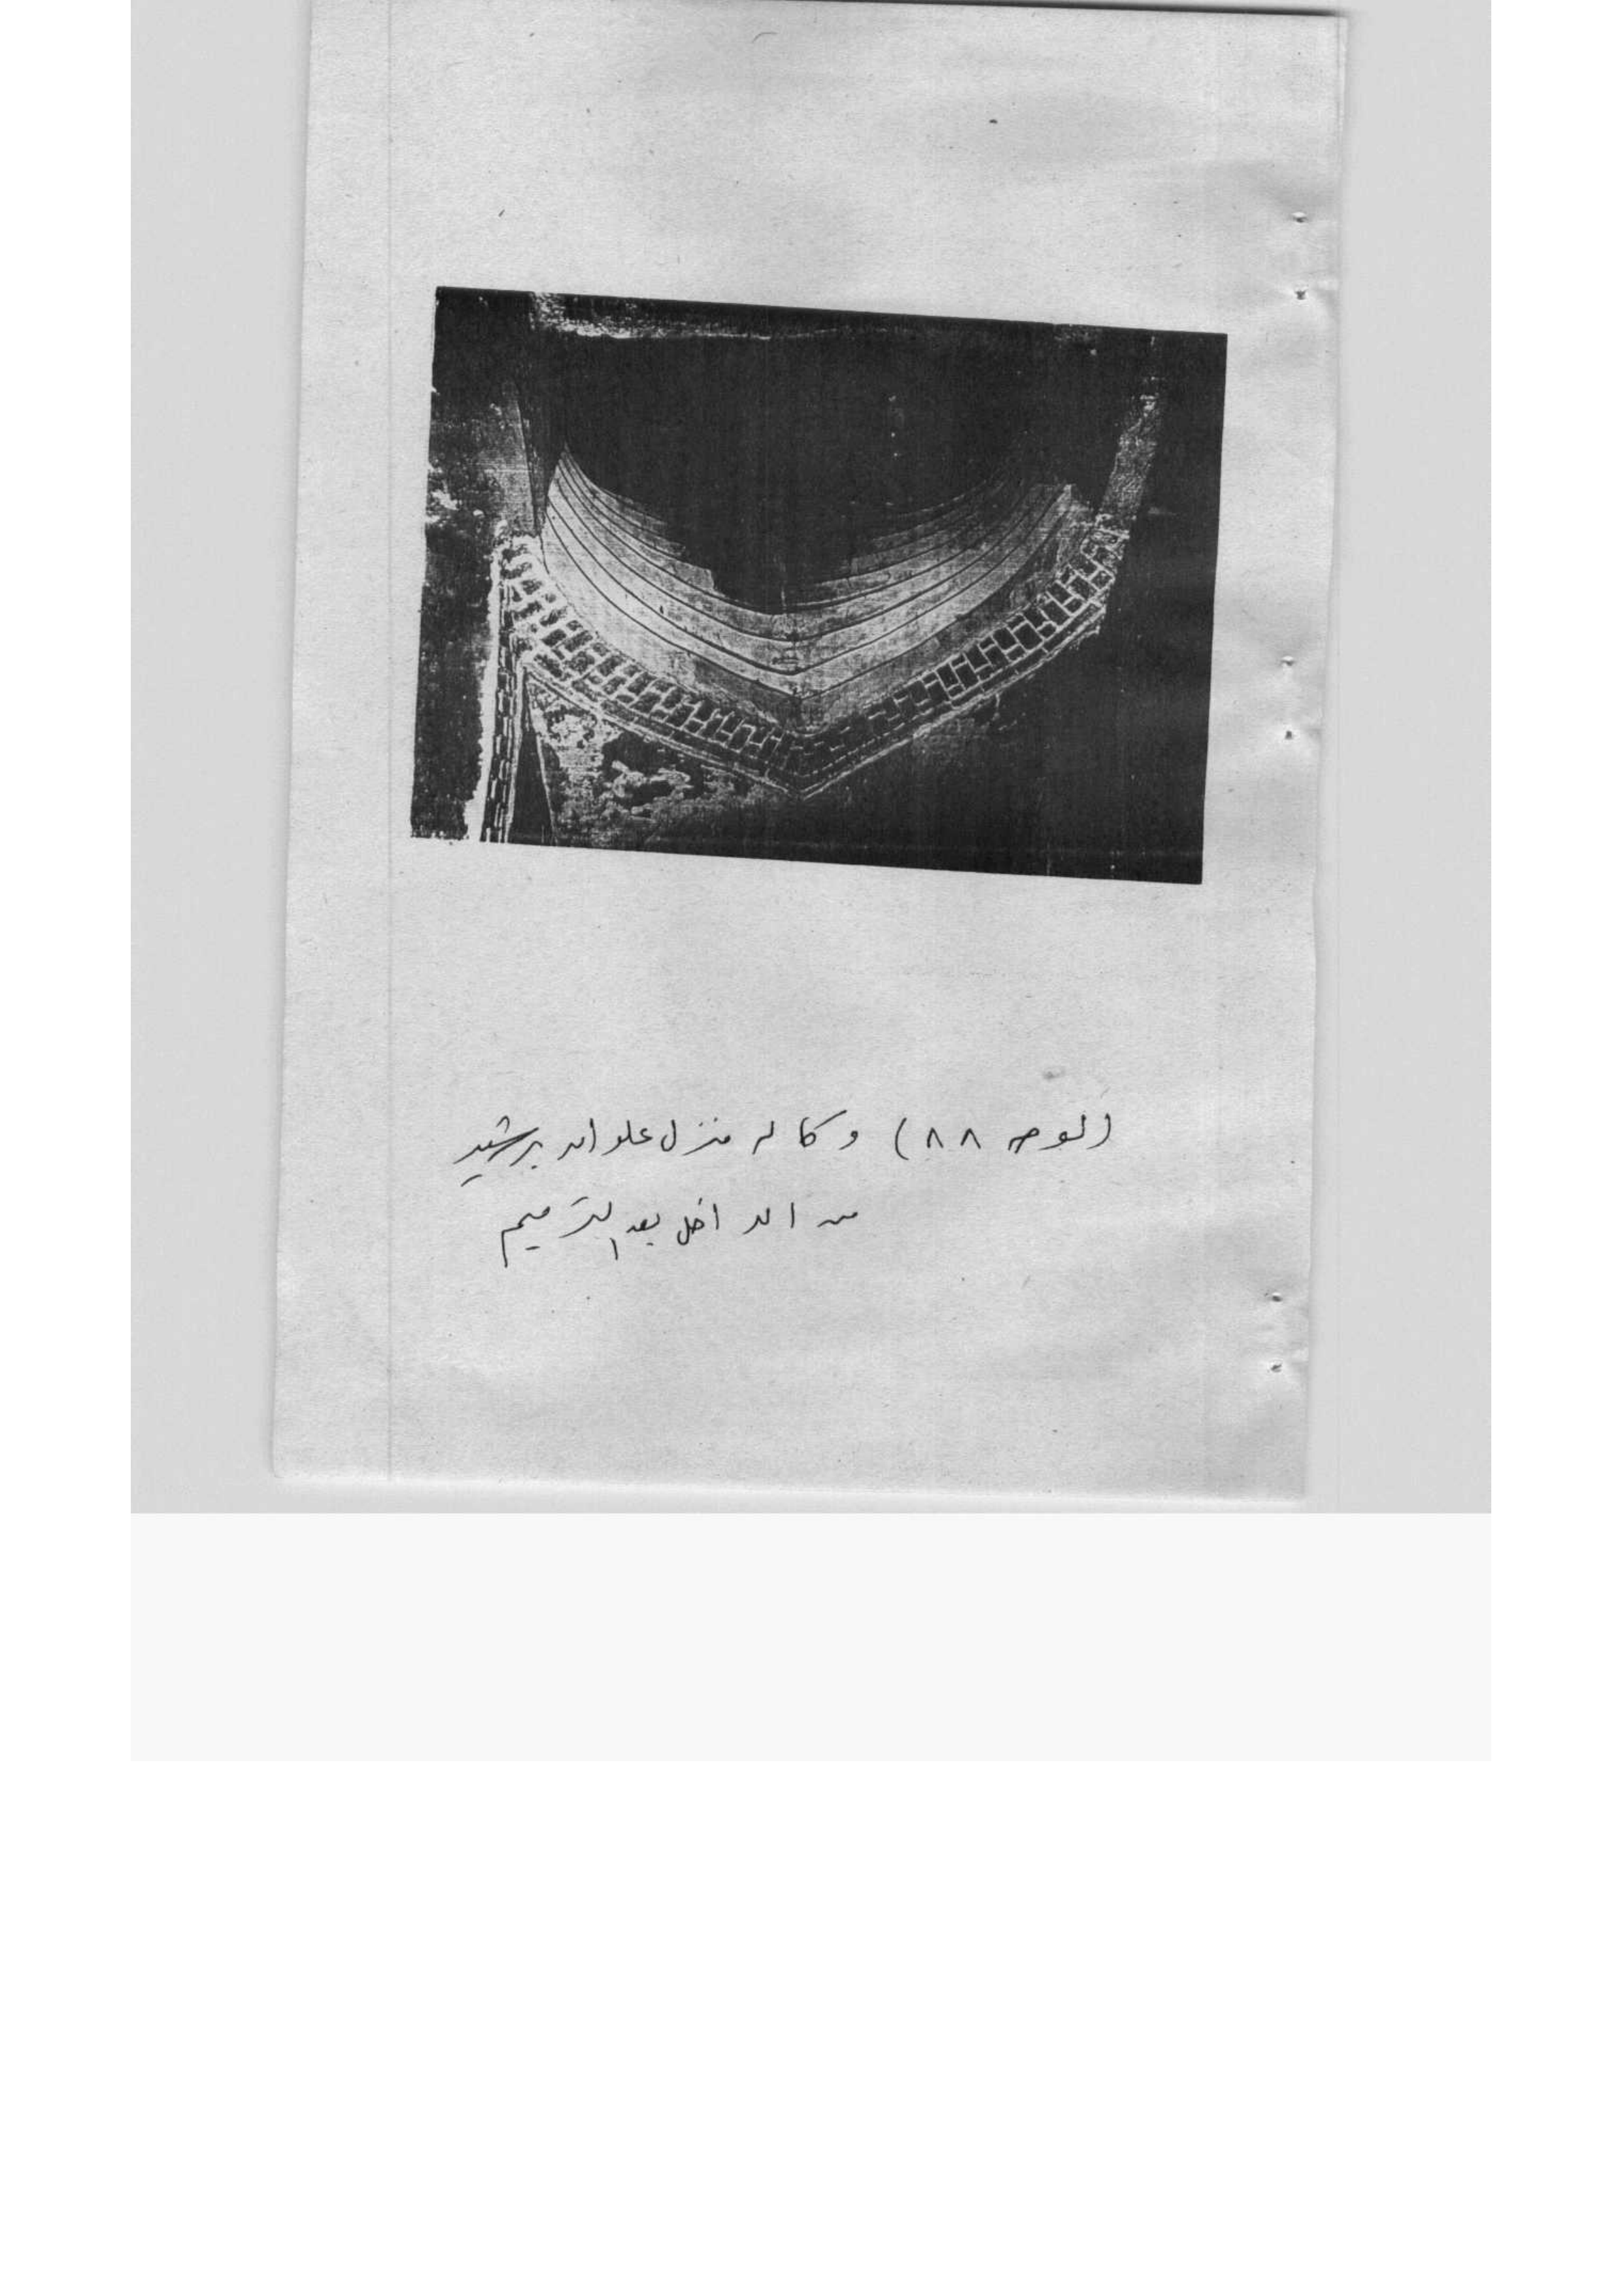 (لوحة ٨٨) وكالة منزل علوان برشيد
من الداخل بعد الترميم